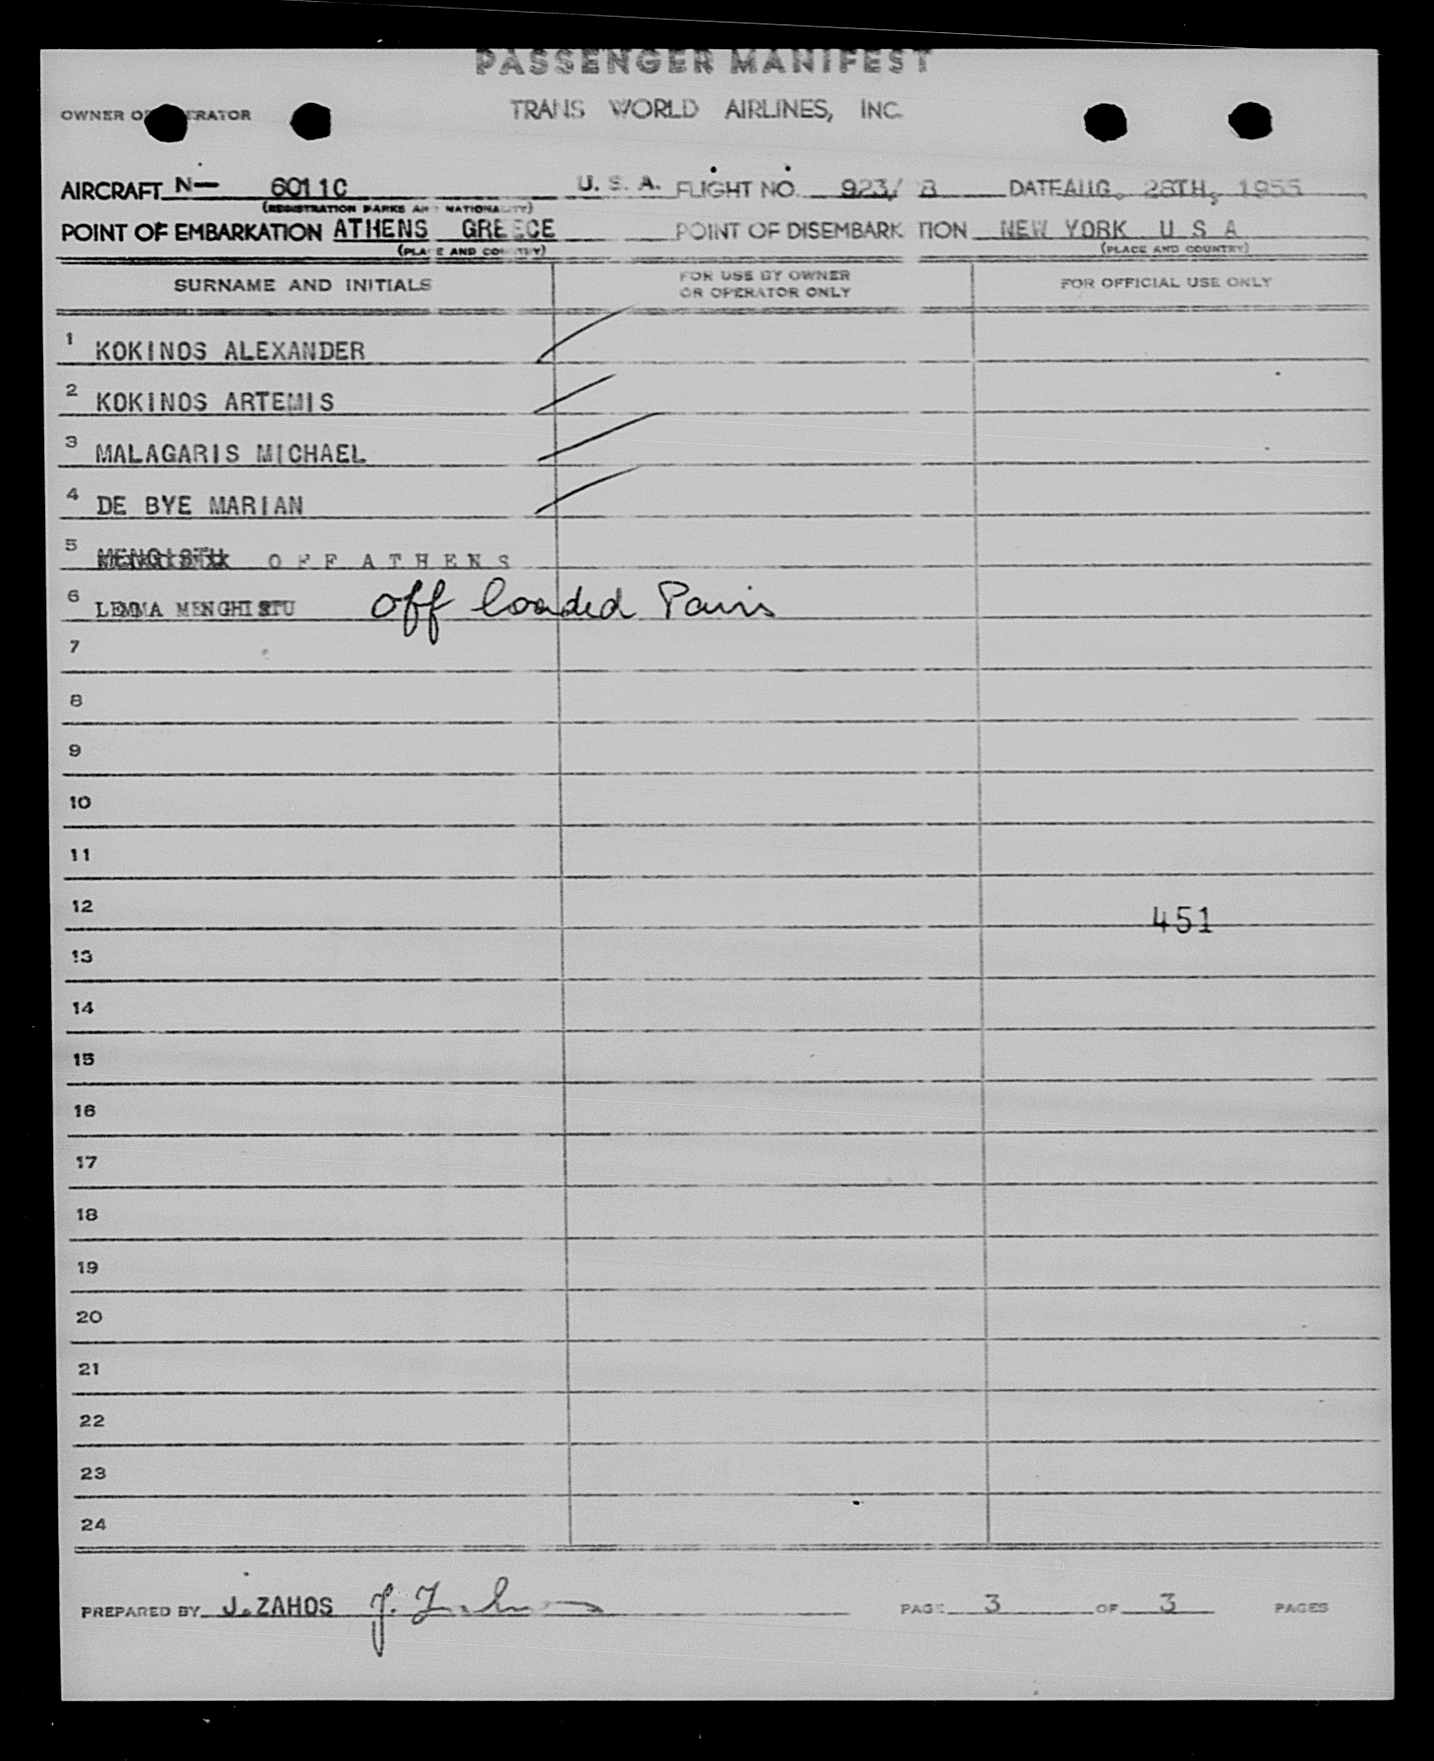 PASSENGER MANIFEST
OWNER OR OPERATOR TRANS WORLD AIRLINES, INC.
AIRCRAFT N— 6011C U. S. A. FLIGHT NO. 923/ DATE AUG. 28TH, 1955
(REGISTRATION MARKS AND NATIONALITY)
POINT OF EMBARKATION ATHENS GREECE POINT OF DISEMBARKATION NEW YORK U S A
(PLACE AND COUNTRY) (PLACE AND COUNTRY)
SURNAME AND INITIALS FOR USE BY OWNER OR OPERATOR ONLY FOR OFFICIAL USE ONLY
1 KOKINOS ALEXANDER
2 KOKINOS ARTEMIS
3 MALAGARIS MICHAEL
4 DE BYE MARIAN
5 O F F A T H E N S
6 LEMMA MENGHISTU off loaded Paris
7
8
9
10
11
12 451
13
14
15
16
17
18
19
20
21
22
23
24
PREPARED BY J.ZAHOS J. Zahos PAGE 3 OF 3 PAGES